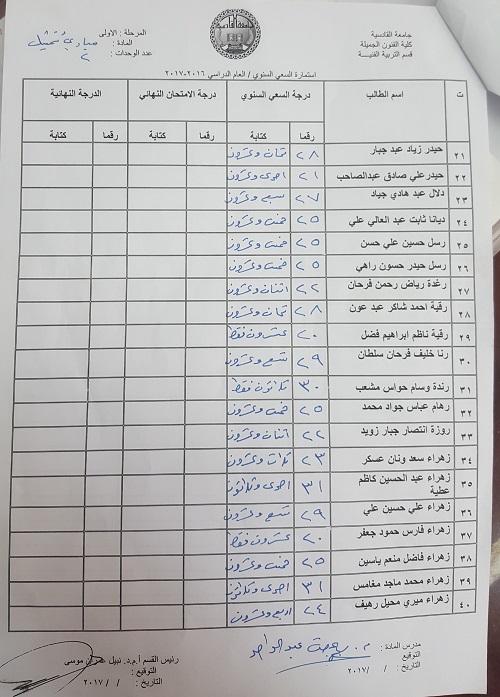 جامعة القادسية
كلية الفنون الجميلة
قسم التربية الفنية
المرحلة : الاولى
المادة : مبادئ تمثيل
عدد الوحدات : ٢
استمارة السعي السنوي / العام الدراسي ٢٠١٦-٢٠١٧
ت اسم الطالب درجة السعي السنوي درجة الامتحان النهائي الدرجة النهائية
رقما كتابة رقما كتابة رقما كتابة
٢١ حيدر زياد عبد جبار ٢٨ ثمان وعشرون
٢٢ حيدر علي صادق عبدالصاحب ٢١ احدى وعشرون
٢٣ دلال عبد هادي جياد ٢٧ سبع وعشرون
٢٤ ديانا ثابت عبد العالي علي ٢٥ خمس وعشرون
٢٥ رسل حسين علي حسن ٢٥ خمس وعشرون
٢٦ رسل حيدر حسون راهي ٢٥ خمس وعشرون
٢٧ رغدة رياض رحمن فرحان ٢٢ اثنان وعشرون
٢٨ رقية احمد شاكر عبد عون ٢٨ ثمان وعشرون
٢٩ رقية ناظم ابراهيم فضل ٢٠ عشرون فقط
٣٠ رنا خليف فرحان سلطان ٢٩ تسع وعشرون
٣١ رندة وسام حواس مشعب ٣٠ ثلاثون فقط
٣٢ رهام عباس جواد محمد ٢٥ خمس وعشرون
٣٣ روزة انتصار جبار زويد ٢٢ اثنان وعشرون
٣٤ زهراء سعد ونان عسكر ٢٣ ثلاث وعشرون
٣٥ زهراء عبد الحسين كاظم عطية ٣١ احدى وثلاثون
٣٦ زهراء علي حسين علي ٢٩ تسع وعشرون
٣٧ زهراء فارس حمود جعفر ٢٠ عشرون فقط
٣٨ زهراء فاضل منعم ياسين ٢٥ خمس وعشرون
٣٩ زهراء محمد ماجد مغامس ٣١ احدى وثلاثون
٤٠ زهراء ميري محيل رهيف ٢٤ اربع وعشرون
مدرس المادة :
التوقيع
التاريخ : / /٢٠١٧
رئيس القسم أ.م.د. نبيل عمران موسى
التوقيع :
التاريخ : / / ٢٠١٧